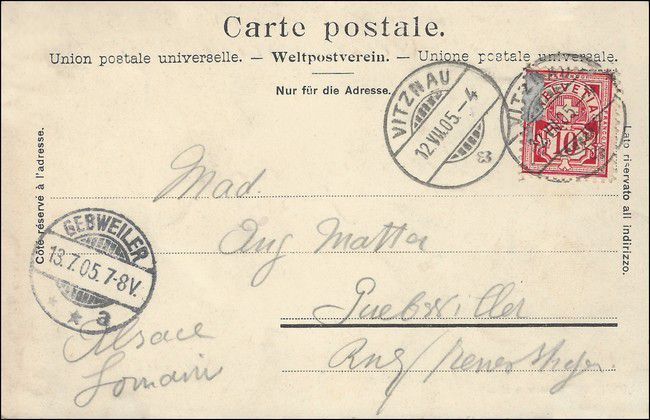 Carte postale.
Union postale universelle. — Weltpostverein. — Unione postale universale.
Nur für die Adresse.
Côté réservé à l'adresse.
Lato riservato all indirizzo.
VITZNAU
12.VII.05.–4
VITZNAU
12.VII.05
HELVETIA
10
FRANCO
Mad.
Aug Matter
Guebwiller
GEBWEILER
13.7.05.7-8V.
* * a
Alsace